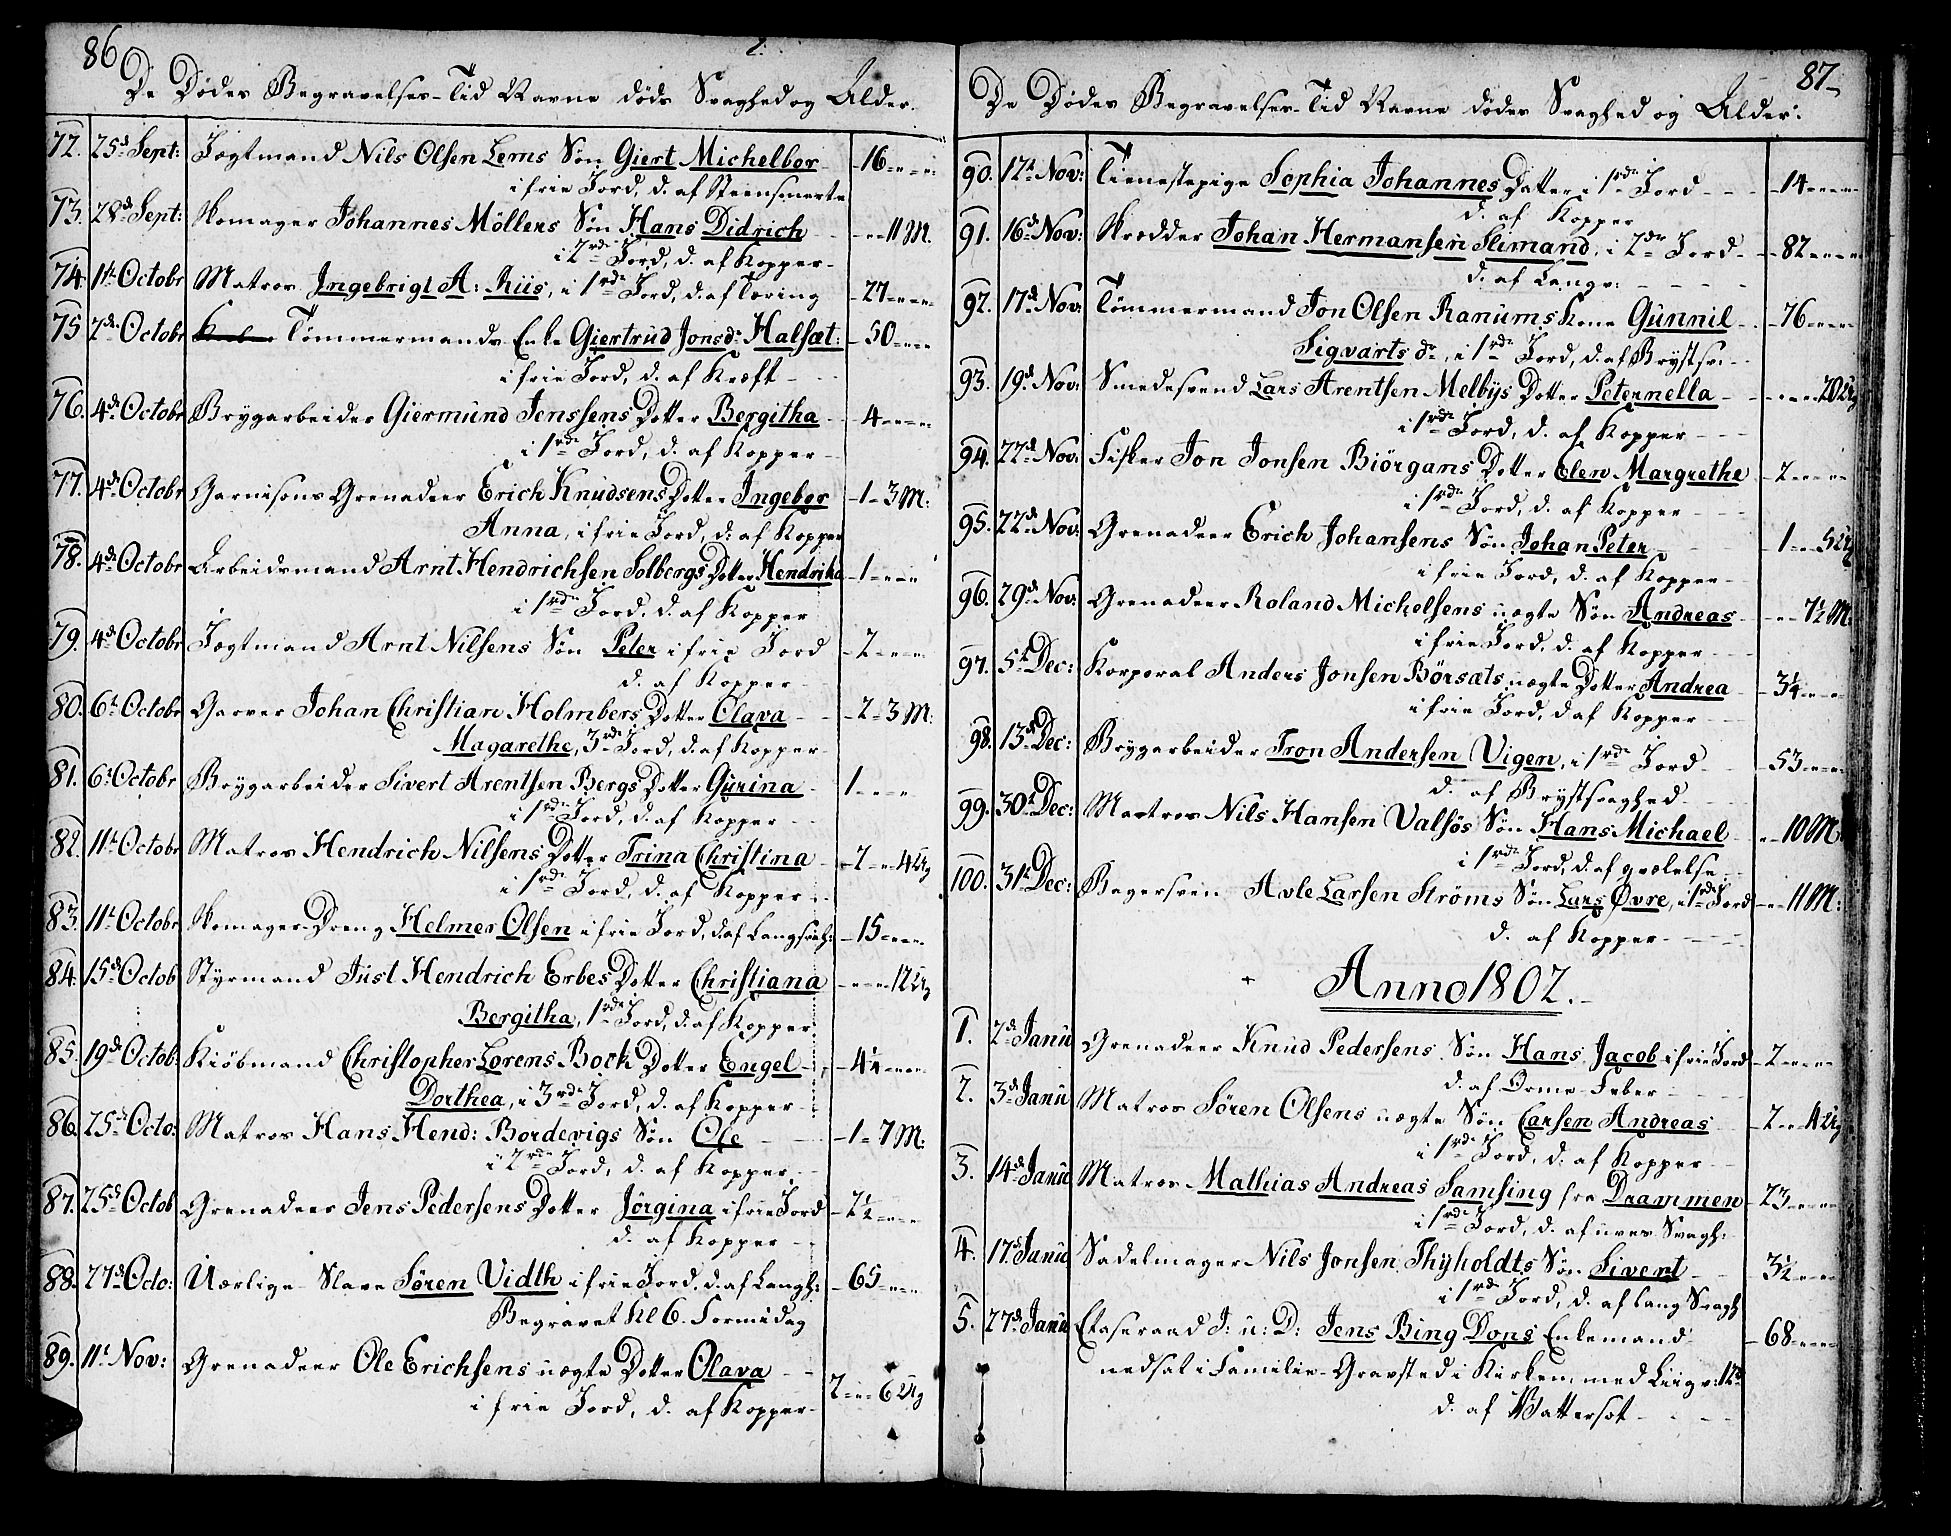 86
De Dødes Begravelses-Tid Navne døds Svaghed og Alder.
72. 25d Sept: Jogtmand Nils Olsen Lems Søn Giert Michelbor - 16 - - -
i frie Jord, d. af Steensmerte
73. 28d Sept: Skomager Johannes Möllers Søn Hans Didrich - - - 11 M.
i 2den Jord, d. af Kopper -
74. 1t Octobr Matros Ingebrigt A: Riis, i 1rdn Jord, d. af Tæring - 27 - - -
75 2d Octobr Tømmermands Enke Giertrud Jonsd: Halsæt: - 50 - - -
i frie Jord, d. af Kræft -
76. 4d Octobr Brygarbeider Giermund Jenssens Dotter Bergitha - 4 - - -
i 1rdn Jord, d. af Kopper -
77. 4d Octobr Garnisons Grenadeer Erich Knudsens Dotter Ingebor - 1 - 3 M:
Anna, i frie Jord, d: af Kopper
78. 4d Octobr Arbeidsmand Arnt Hendrichsen Solbergs Dotter Hendrika - 1 - - -
i 1rdn Jord, d. af Kopper
79. 4d Octobr Jogtmand Arnt Nilsens Søn Peter i frie Jord - 2 - - -
d. af Kopper
80. 6t Octobr Garver Johan Christian Holmbers Dotter Olava - 2 - 3 M:
Magarethe, 3rdn Jord, d. af Kopper -
81. 6t Octobr Brygarbeider Sivert Arentsen Bergs Dotter Gurina - 1 - - -
i 1rdn Jord, d. af Kopper - -
82. 11t Octobr Matros Hendrich Nilsens Dotter Trina Christina - 2 - - 4 Ug
i 1rdn Jord, d. af Kopper - -
83. 11t Octobr Skomager-Dreng Helmer Olsen i frie Jord, d. af Langsvagh: - 15 - - -
84. 15d Octob Styrmand Just Hendrich Erbes Dotter Christiana - - - - 12 Ug
Bergitha, 1rdn Jord, d. af Kopper
85. 19d Octob: Kiöbmand Christopher Lorens Bock Dotter Engel - 4¼ - - -
Dorthea, i 3rdn Jord, d. af Kopper -
86. 25d Octo: Matros Hans Hend: Bordevigs Søn Ole - 1 - 7 M:
i 2rdn Jord, d. af Kopper, -
87. 25d Octob Grenadeer Jens Pedersens Dotter Jörgina i frie Jord - 2½ - - -
d. af Kopper - -
88. 27d Octo: Uærlige Slave Sören Vidth i frie Jord. d. af Langh: - 65 - - -
Begravet Kl 6. Formidag
89. 11t Nov: Grenadeer Ole Erichsens uægte Dotter Olava - - 2 - - 6 Ug
i frie Jord, d. af Kopper -
87
De Dødes Begravelses-Tid Navne dødes Svaghed og Alder.
90. 12t Nov: Tienestepige Sophia Johannes Datter i 1rdn Jord - - 14 - - -
d. af Kopper
91. 16d Nov: Skrædder Johan Hermansen Slimand, i 2dn Jord - - 82 - - -
d. af Langv: - - - -
92. 17d Nov: Tømmermand Jon Olsen Ranums Kone Gunnil - - 76 - - -
Sigvarts dr, i 1rdn Jord, d. af Brystsv: -
93. 19d Nov: Smedesvend Lars Arentsen Melbys Dotter Peternella - - - - 20 Ug
i 1rdn Jord, d. af Kopper - - -
94. 22d Nov: Fisker Jon Jonsen Biörgans Dotter Elen Margrethe - 2 - - -
i 1rdn Jord, d. af Kopper - - -
95. 22d Nov: Grenadeer Erich Johansens Søn Johan Peter - - 1 - - 5 Ug
i frie Jord, d. af Kopper -
96. 29d Nov: Grenadeer Roland Michelsens uægte Søn Andreas - - - 7½ M:
i frie Jord, d. af Kopper - -
97. 5t Dec: Korporal Anders Jonsen Börsæts uægte Dotter Andrea - 3¼ - - -
i frie Jord, d af Kopper - -
98. 13d Dec: Brygarbeider Tron Andersen Vigen, i 1rdn Jord - - 53 - - -
d. af Brystsvaghed - -
99. 30t Dec: Matros Nils Hansen Valsös Søn Hans Michael - - 10 M:
i 1rdn Jord, d. af qvælelse.
100. 31t Dec: Bagersven Avle Larsen Ströms Søn Lars Øvre, i 1rdn Jord - - 11 M:
d. af Kopper - - - - -
Anno 1802.
1. 2d Janu Grenadeer Knud Pedersens Søn Hans Jacob i frie Jord - 2 - - -
d. af Orme-Feber - -
2. 3d Janu Matros Sören Olsens uægte Søn Carsen Andreas - 2 - - 4 Ug
i 1rdn Jord, d. af Kopper - -
3. 14d Janu Matros Mathias Andreas Samsing fra Drammen - 23 - - -
i 1rdn Jord, d. af uves Svagh:
4. 17d Janu Sadelmager Nils Jonsen Thyholdts Søn Sivert - 3½ - - -
i 1rdn Jord, d. af lang Svagh
5. 27d Janu Etaseraad J: u: D: Jens Bing Dons Enkemand - 68 - - -
nedsat i Familie-Gravsted i Kirken, med Liigv: 12d
d. af Wattersot - - - -